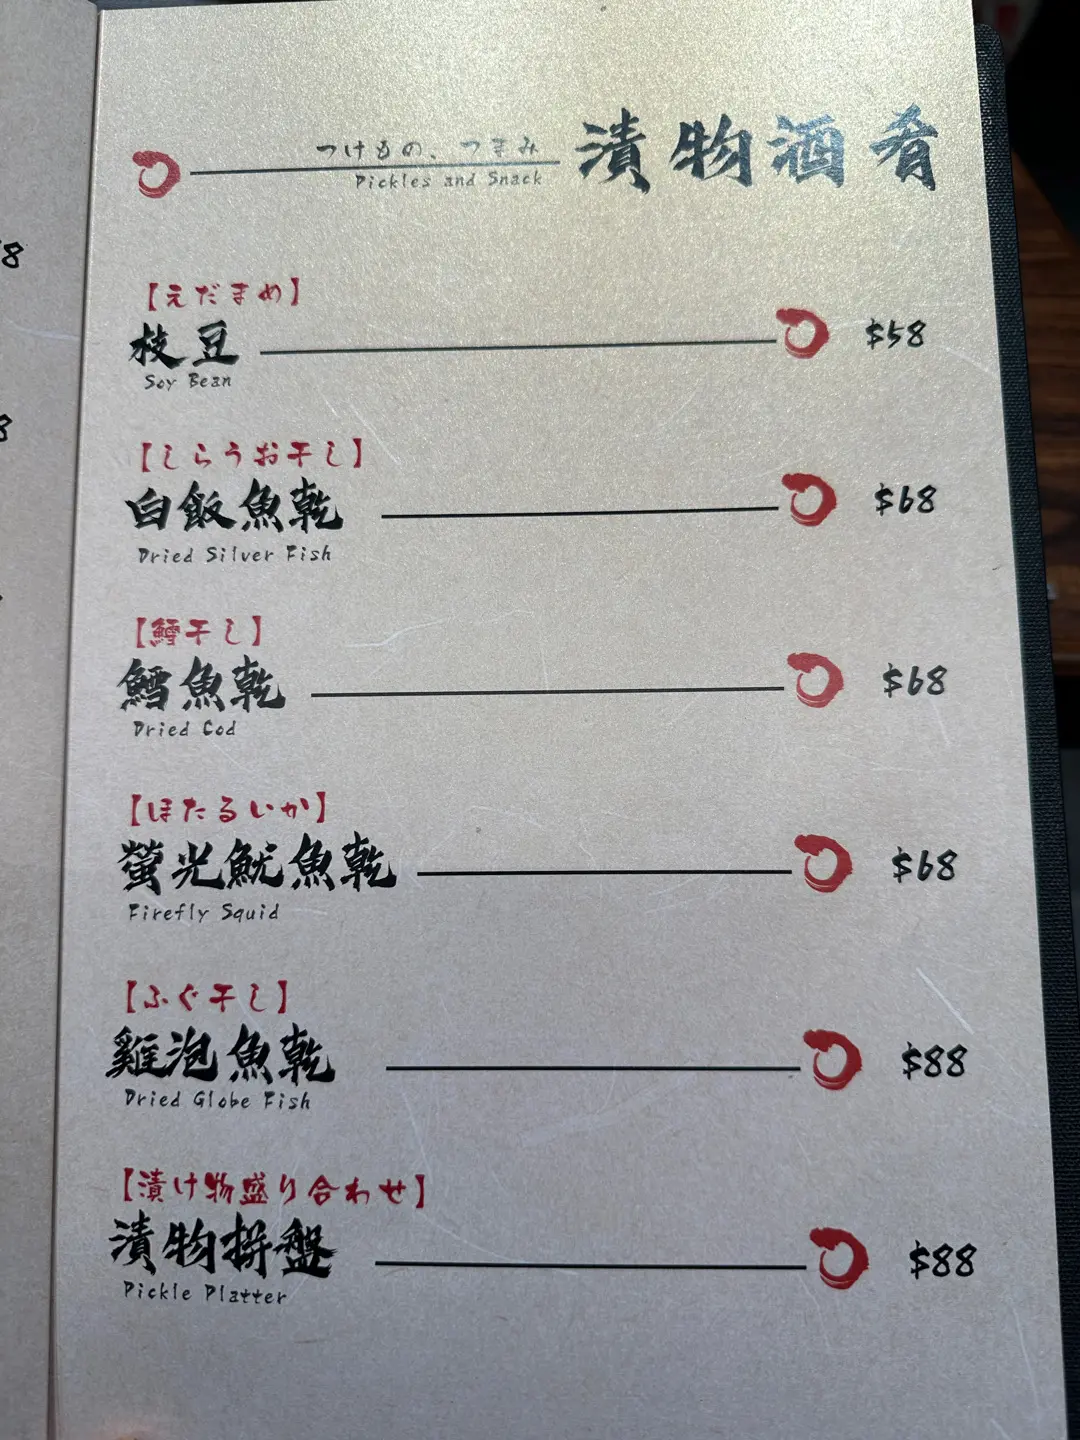 つけもの、つまみ
Pickles and Snack
漬物酒肴
【えだまめ】
枝豆
$58
Soy Bean
【しらうお干し】
白飯魚乾
$68
Dried Silver Fish
【鱈干し】
鱈魚乾
$68
Dried Cod
【ほたるいか】
螢光魷魚乾
$68
Firefly Squid
【ふぐ干し】
雞泡魚乾
$88
Dried Globe Fish
【漬け物盛り合わせ】
漬物拼盤
$88
Pickle Platter